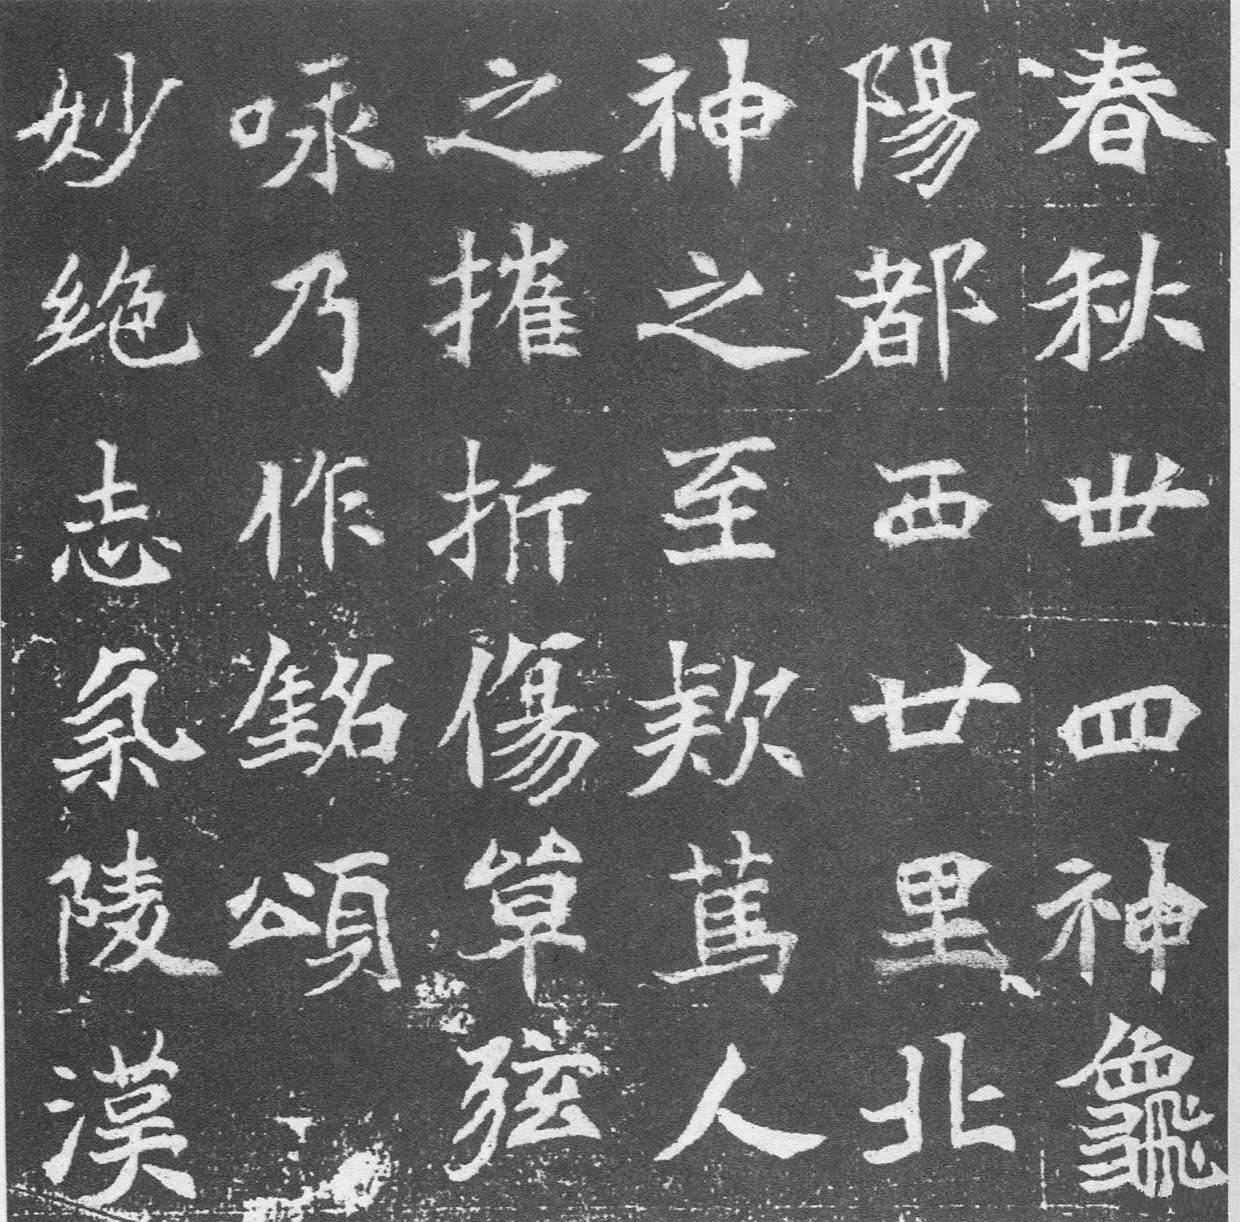 春秋丗四神龜
陽都西廿里北
神之至欵篤人
之摧折傷草弦
咏乃作銘頌
妙絶志氣陵漢